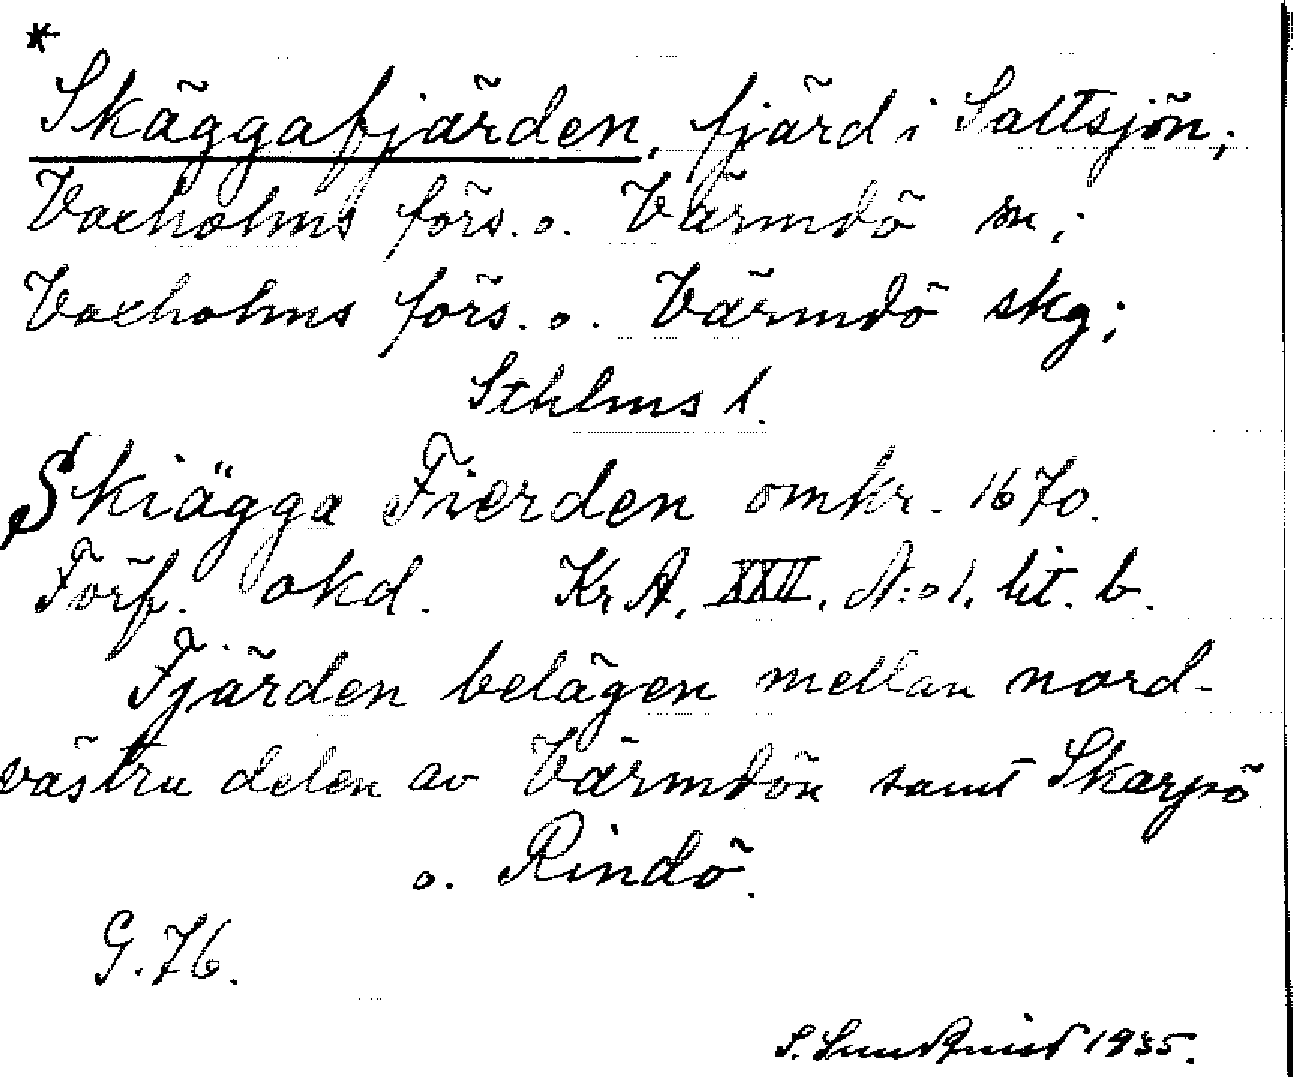 *
Skäggafjärden, fjärd i Saltsjön;
Vaxholms förs. o. Värmdö sn;
Vaxholms förs. o. Värmdö skg;
Sthlms l.
Skiägga Fierden omkr. 1670.
Förf. okd. Kr. A. XXV. N:o 1. lit. b.
Fjärden belägen mellan nord-
västra delen av Värmdön samt Skarpö
o. Rindö.
G. 76.
S. 1935.